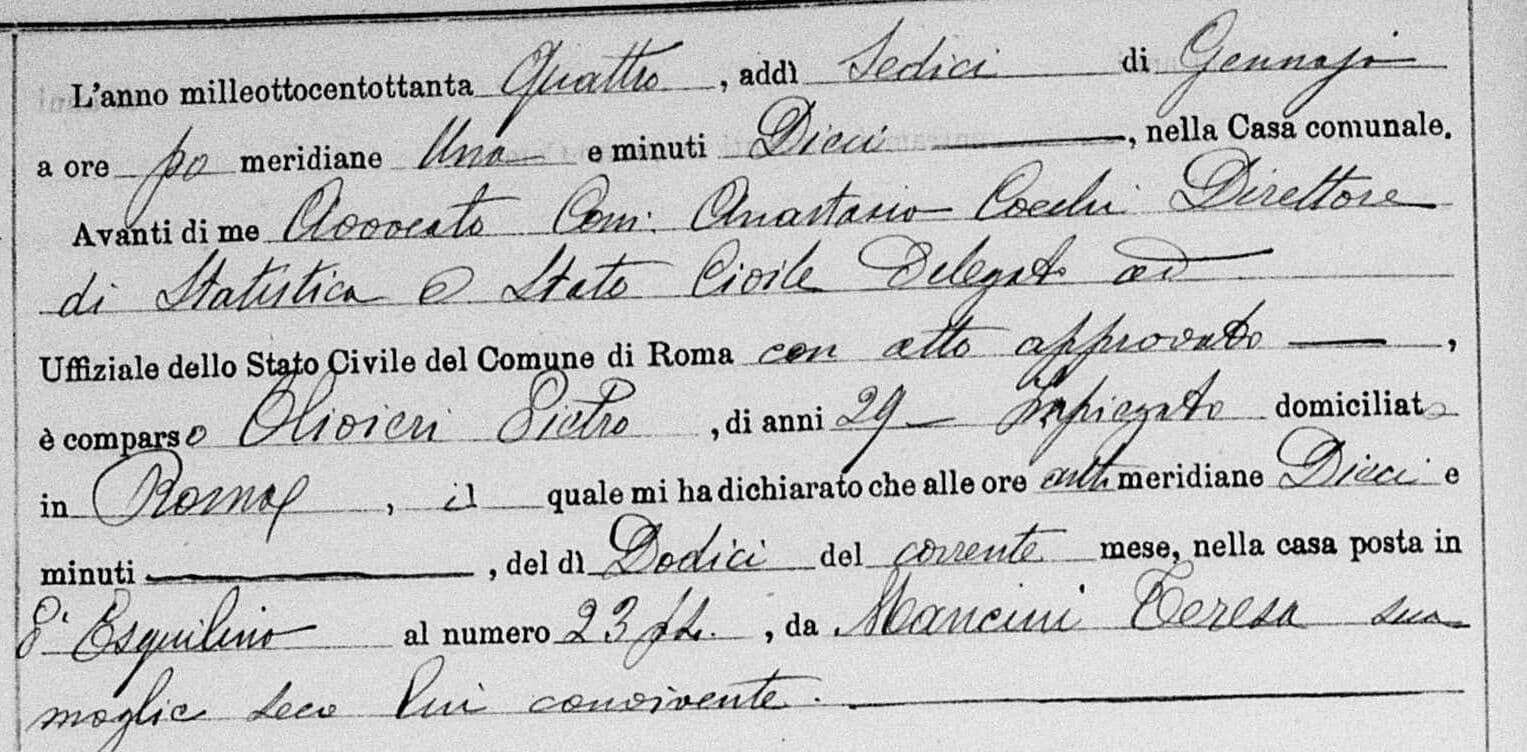 L'anno milleottocentottanta Quattro, addì Sedici di Gennajo
a ore po meridiane Una e minuti Dieci, nella Casa comunale.
Avanti di me Avvocato Com: Anastasio Cocchi Direttore
di Statistica e Stato Civile Delegato ad
Uffiziale dello Stato Civile del Comune di Roma con atto approvato,
è comparso Olivieri Pietro, di anni 29 Impiegato domiciliato
in Roma, il quale mi ha dichiarato che alle ore anti meridiane Dieci e
minuti, del dì Dodici del corrente mese, nella casa posta in
Esquilino al numero 23, da Mancini Teresa sua
moglie seco lui convivente.